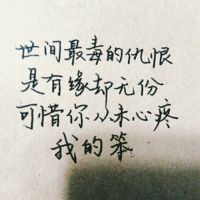 世间最毒的仇恨
是有缘却无份
可惜你从未心疼
我的笨